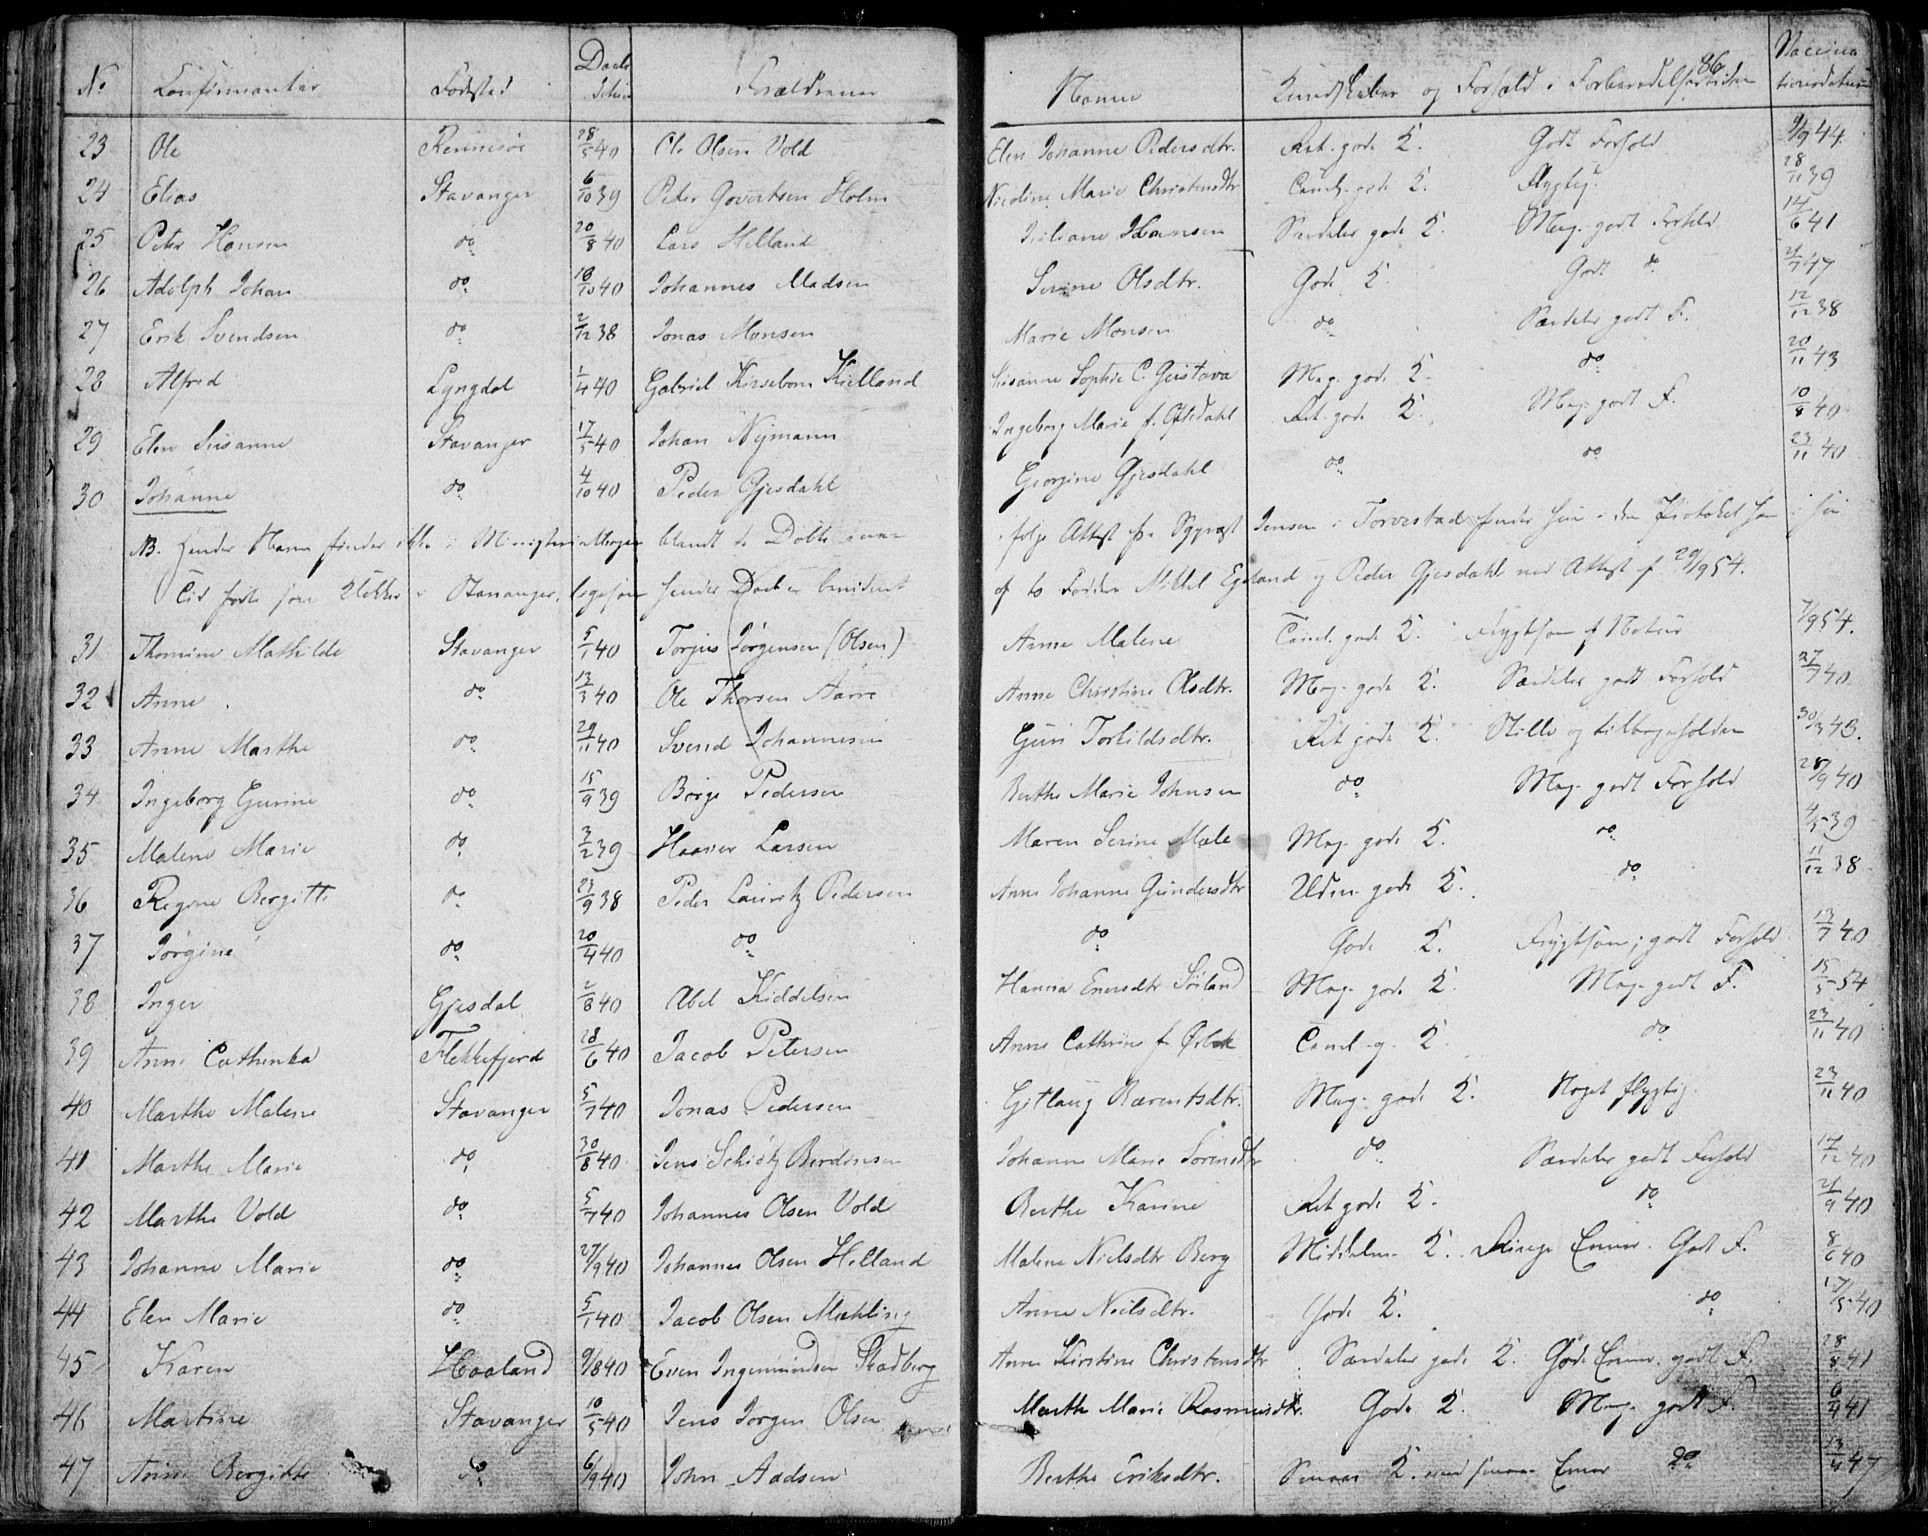 86
No Confirmanter Fødsted Daabs datum Forældrenes Navne Kundskaber og Forhold i Forberedelsestiden Vaccinationsdatum
23 Ole Rennesøe 28/5 40 Ole Olsen Vold Elen Johanne Pedersdtr. Ret gode K. Godt Forhold 9/9 44.
24 Elias Stavanger 6/10 39 Peder Govertsen Holm Nicoline Marie Christensdtr. Tmel. gode K. Flygtig. 28/11 39
25 Peter Hansen do 20/8 40 Lars Helland Juliane Hansen Særdeles gode K. Meg. godt Forhold 14/6 41
26 Adolph Johan do 18/10 40 Johannes Madsen Serine Olsdtr. Gode K. Godt do 2/7 47
27 Erik Svendsen do 2/12 38 Jonas Monsen Marie Monsen do Særdeles godt F. 12/12 38
28 Alfred Lyngdal 1/4 40 Gabriel Kirsebom Kielland Susanne Sophie C. Gustava Meg. gode K. do 20/11 43
29 Elen Susanne Stavanger 17/5 40 Johan Nymann Ingeborg Marie f. Opsdahl Ret gode K. Meg. godt F. 10/8 40
30 Johanne do 4/10 40 Peder Gjesdahl Georgine Gjesdahl do do 23/11 40
NB. Hendes Navn findes ikke i Ministerialbogen blandt de Døbte; men ifølge Attest fra Sgprest Jensen i Torvestad findes hun i den Protokol han i sin
Tid førte som Klokker i Stavanger, ligesom hendes Daab er bevidnet af to Faddere Mikkel Egeland og Peder Gjesdahl ved Attest af 29/9 54.
31 Thomine Mathilde Stavanger 5/1 40 Torjus Jørgensen (Olsen) Anne Malene Tmel. gode K. Frygtsom af Natur 7/9 54.
32 Anne do 13/3 40 Ole Thorsen Aarre Anne Christine Olsdtr. Meg. gode K. Særdeles godt Forhold 27/7 40
33 Anne Marthe do 29/11 40 Svend Johannesen Guri Torkildsdtr. Ret gode K. Stille og tilbageholden 30/3 43.
34 Ingeborg Gurine do 15/9 39 Børge Pedersen Berthe Marie Johnsen do Meg. godt Forhold 28/9 40
35 Malene Marie do 3/2 39 Haaver Larsen Maren Serine Male Meg. gode K. do 4/5 39
36 Regine Bergitte do 23/9 38 Peder Lauritz Pedersen Anne Johanne Gundersdtr Udm. gode K. do 11/12 38
37 Jørgine do 20/4 40 do do Gode K. Frygtsom; godt Forhold 13/7 40
38 Inger Gjesdal 2/8 40 Abel Kiddelsen Hanna Enersdtr Søiland Meg. gode K. Meg. godt F. 15/5 54
39 Anne Cathinka Flekkefjord 28/6 40 Jacob Petersen Anne Cathrine f. Tmel. g. K. do 23/11 40
40 Marthe Malene Stavanger 5/7 40 Jonas Pedersen Gitlaug Barentsdtr. Meg. gode K. Noget flygtig. 23/11 40
41 Marthe Marie do 30/8 40 Jens Schiøtz Berdinsen Johanne Marie Sørensdtr do Særdeles godt Forhold 14/12 40
42 Marthe Vold do 5/7 40 Johannes Olsen Vold Berthe Karine Ret gode K. do 21/9 40
43 Johanne Marie do 27/9 40 Johannes Olsen Helland Malene Nielsdtr Berg Middelm. K. Ringe Evner. Godt F. 8/6 40
44 Elen Marie do 5/1 40 Jacob Olsen Mæhling Anne Neilsdtr. Gode K. do 17/5 40
45 Karen Haaland 9/8 40 Even Ingemundsen Skadberg Anne Kirstine Christensdtr Særdeles gode K. Gode Evner. godt F. 28/8 41
46 Martine Stavanger 10/5 40 Jens Jørgen Olsen Marthe Marie Rasmusdtr. Gode K. Meg. godt F. 6/4 41
47 Anne Bergitte do 6/9 40 John Aadsen Berthe Eriksdtr. Svage K. med svage Evner do 13/4 47